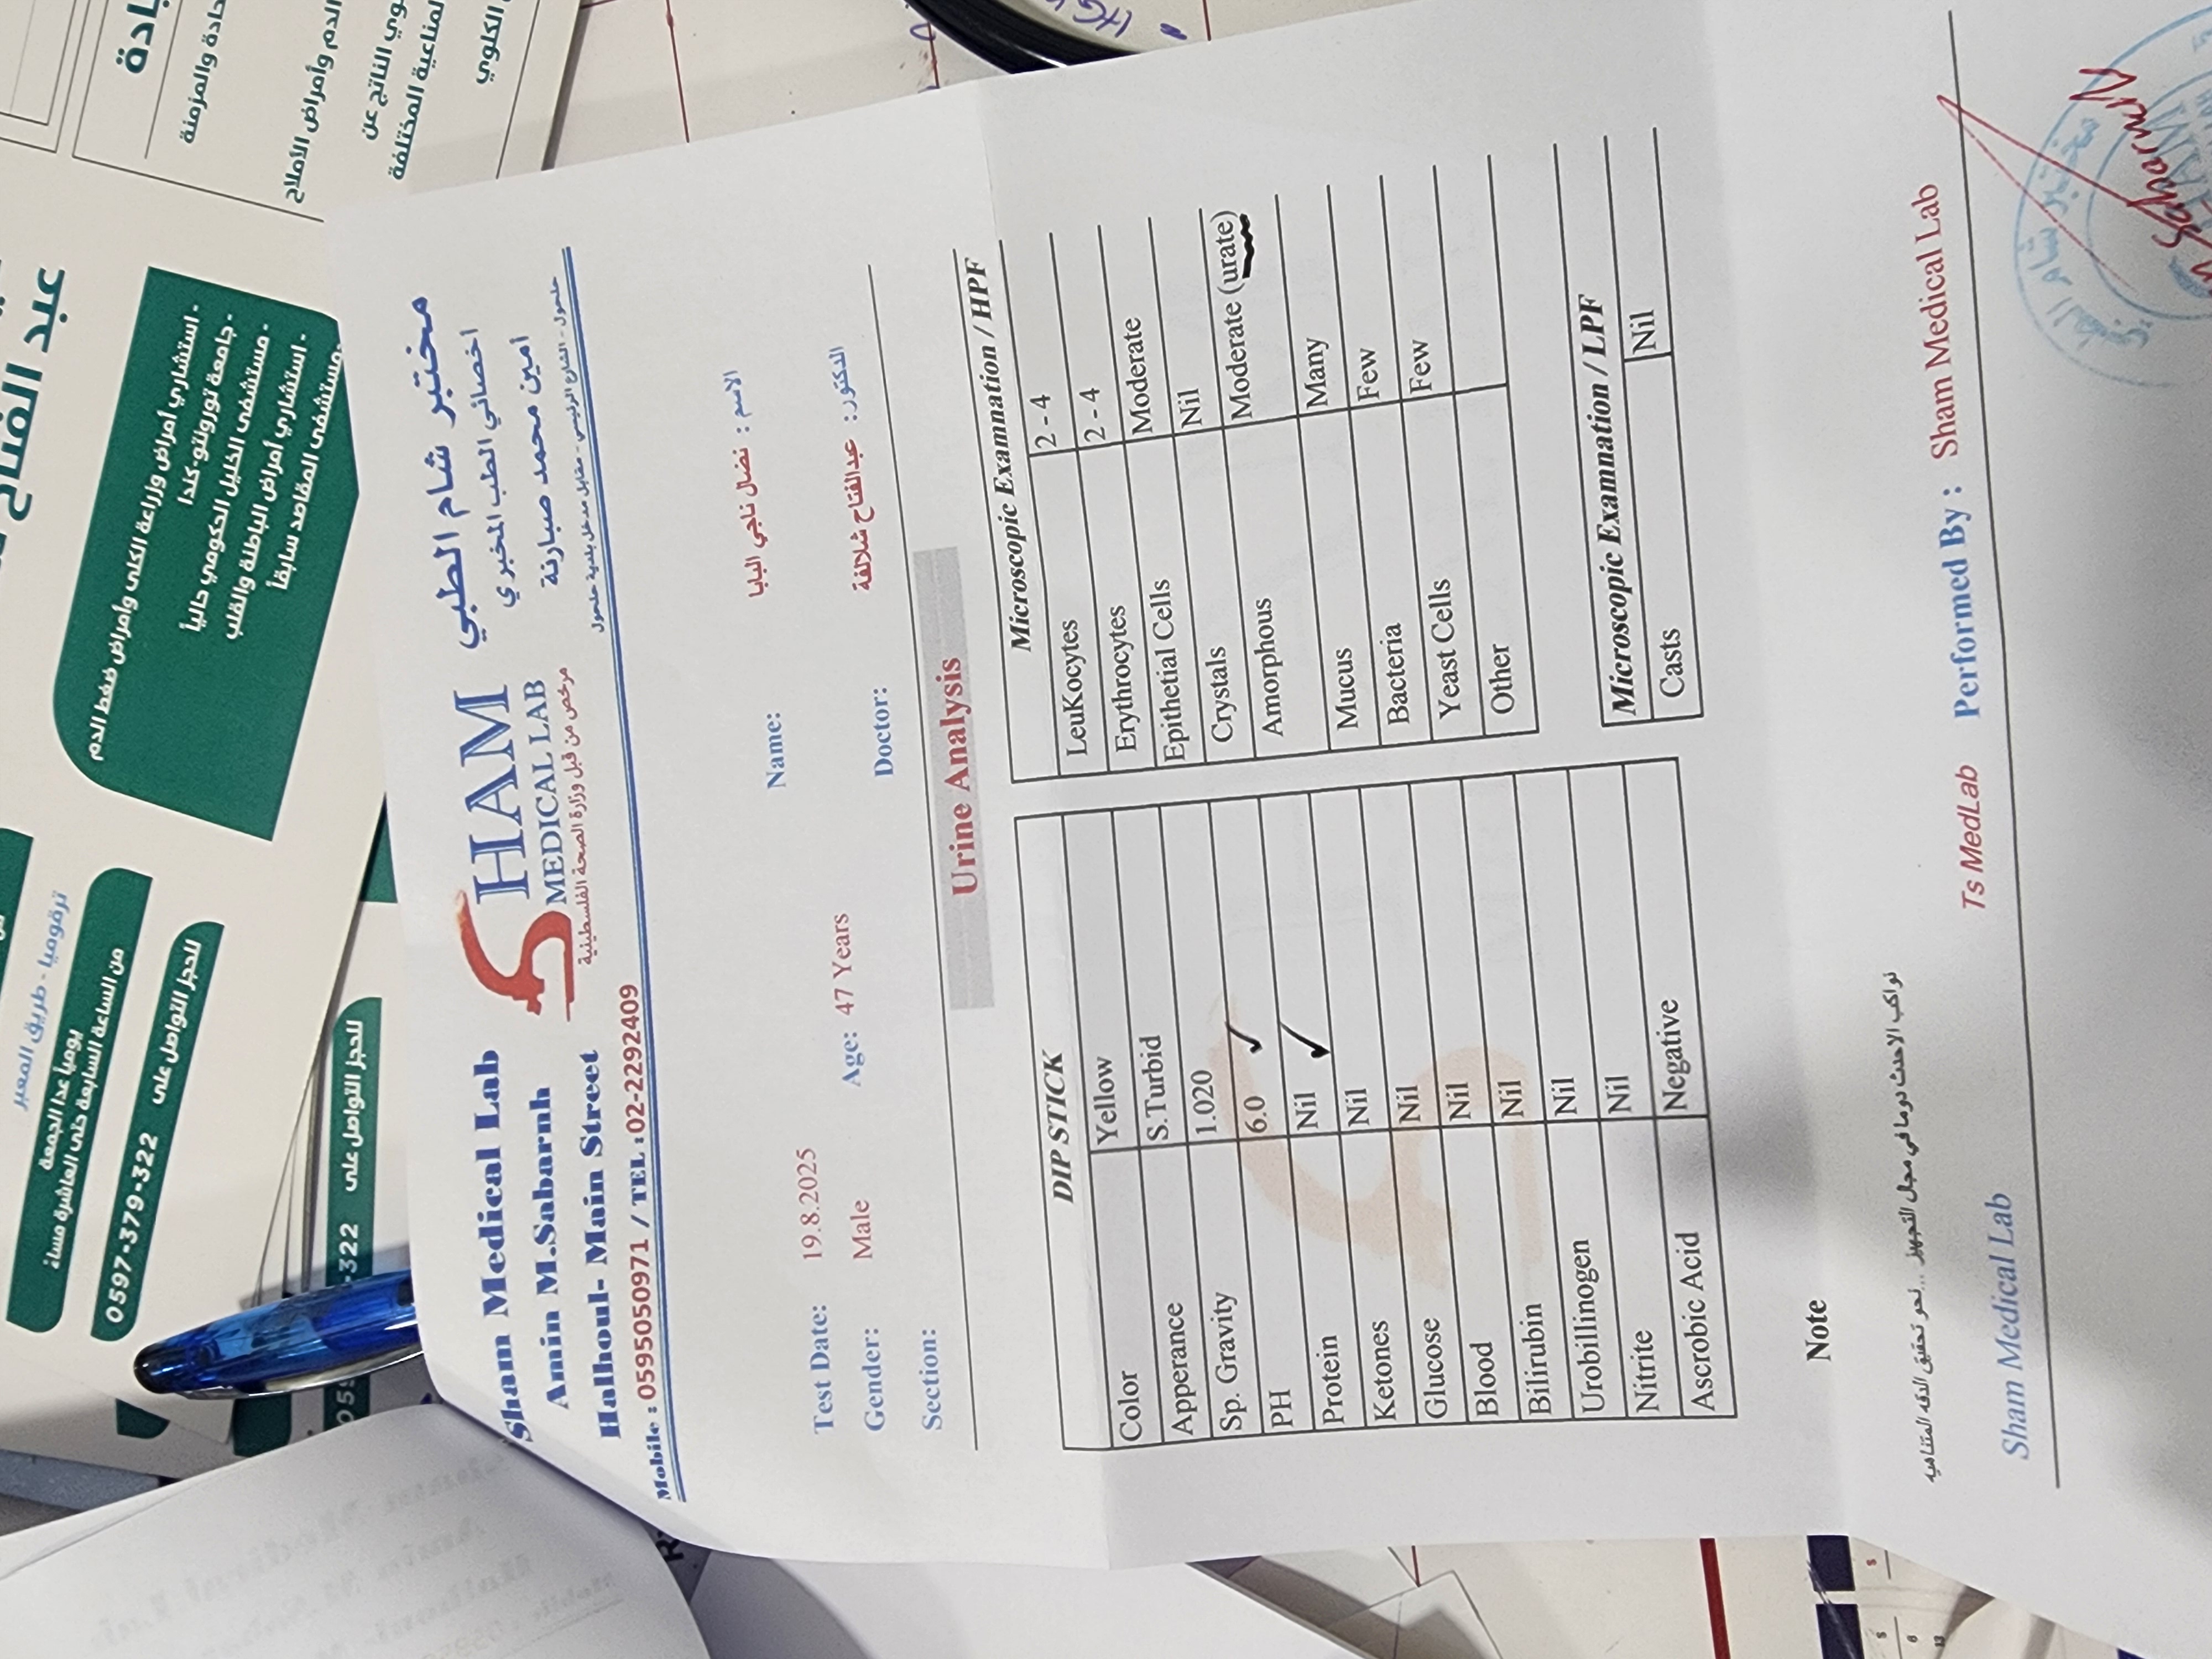 Sham Medical Lab
Amin M.Sabarnh
Halhoul- Main Street
Mobile : 0595050971 / TEL :02-2292409
SHAM
MEDICAL LAB
مرخص من قبل وزارة الصحة الفلسطينية
مختبر شام الطبي
اخصائي الطب المخبري
امين محمد صبارنة
حلحول - الشارع الرئيسي - مقابل مدخل بلدية حلحول
Test Date: 19.8.2025
Name:
الاسم : نضال ناجي البابا
Gender: Male
Age: 47 Years
Doctor:
الدكتور: عبدالفتاح شلالفة
Section:
Urine Analysis
DIP STICK
Color Yellow
Apperance S.Turbid
Sp. Gravity 1.020
PH 6.0 ✓
Protein Nil ✓
Ketones Nil
Glucose Nil
Blood Nil
Bilirubin Nil
Urobillinogen Nil
Nitrite Nil
Ascrobic Acid Negative
Microscopic Examnation / HPF
LeuKocytes 2 - 4
Erythrocytes 2 - 4
Epithetial Cells Moderate
Crystals Nil
Amorphous Moderate (urate)
Mucus Many
Bacteria Few
Yeast Cells Few
Other
Microscopic Examnation / LPF
Casts Nil
Note
نواكب الاحدث دوما في مجال التجهيز ... نحو تحقيق الدقه المتناهيه
Sham Medical Lab
Ts MedLab
Performed By : Sham Medical Lab
عبد الفتاح
- استشاري أمراض وزراعة الكلى وأمراض ضغط الدم
جامعة تورونتو-كندا
- مستشفى الخليل الحكومي حالياً
- استشاري أمراض الباطنة والقلب
مستشفى المقاصد سابقاً
ترقوميا - طريق المعبر
يومياً عدا الجمعة
من الساعة السابعة حتى العاشرة مساءً
للحجز التواصل على 0597-379-322
للحجز التواصل على
-322
حادة والمزمنة
الدم وأمراض الأملاح
وي الناتج عن
لمناعية المختلفة
الكلوي